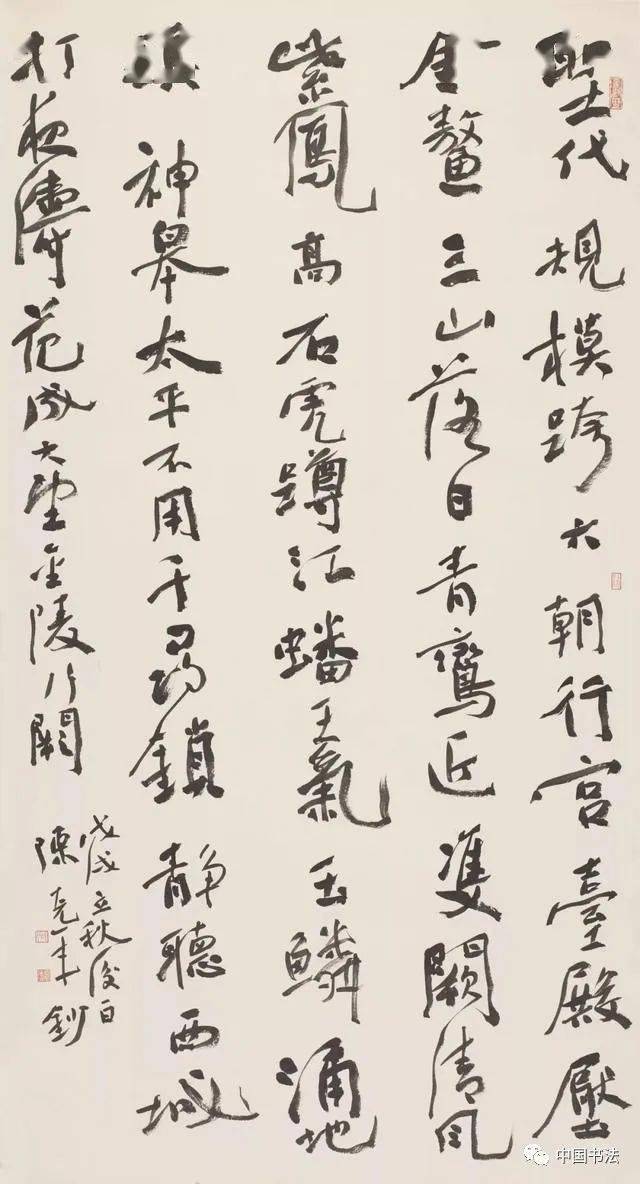 聖代規模跨六朝行宮臺殿壓
金鼇三山落日青鸞近雙闕清風
紫鳳高石虎蹲江蟠王氣玉鱗湧地
鎮神皋太平不用千尋鎖靜聽西城
打夜濤范成大望金陵行闕
戊戌立秋後日
陳年鈔
中国书法